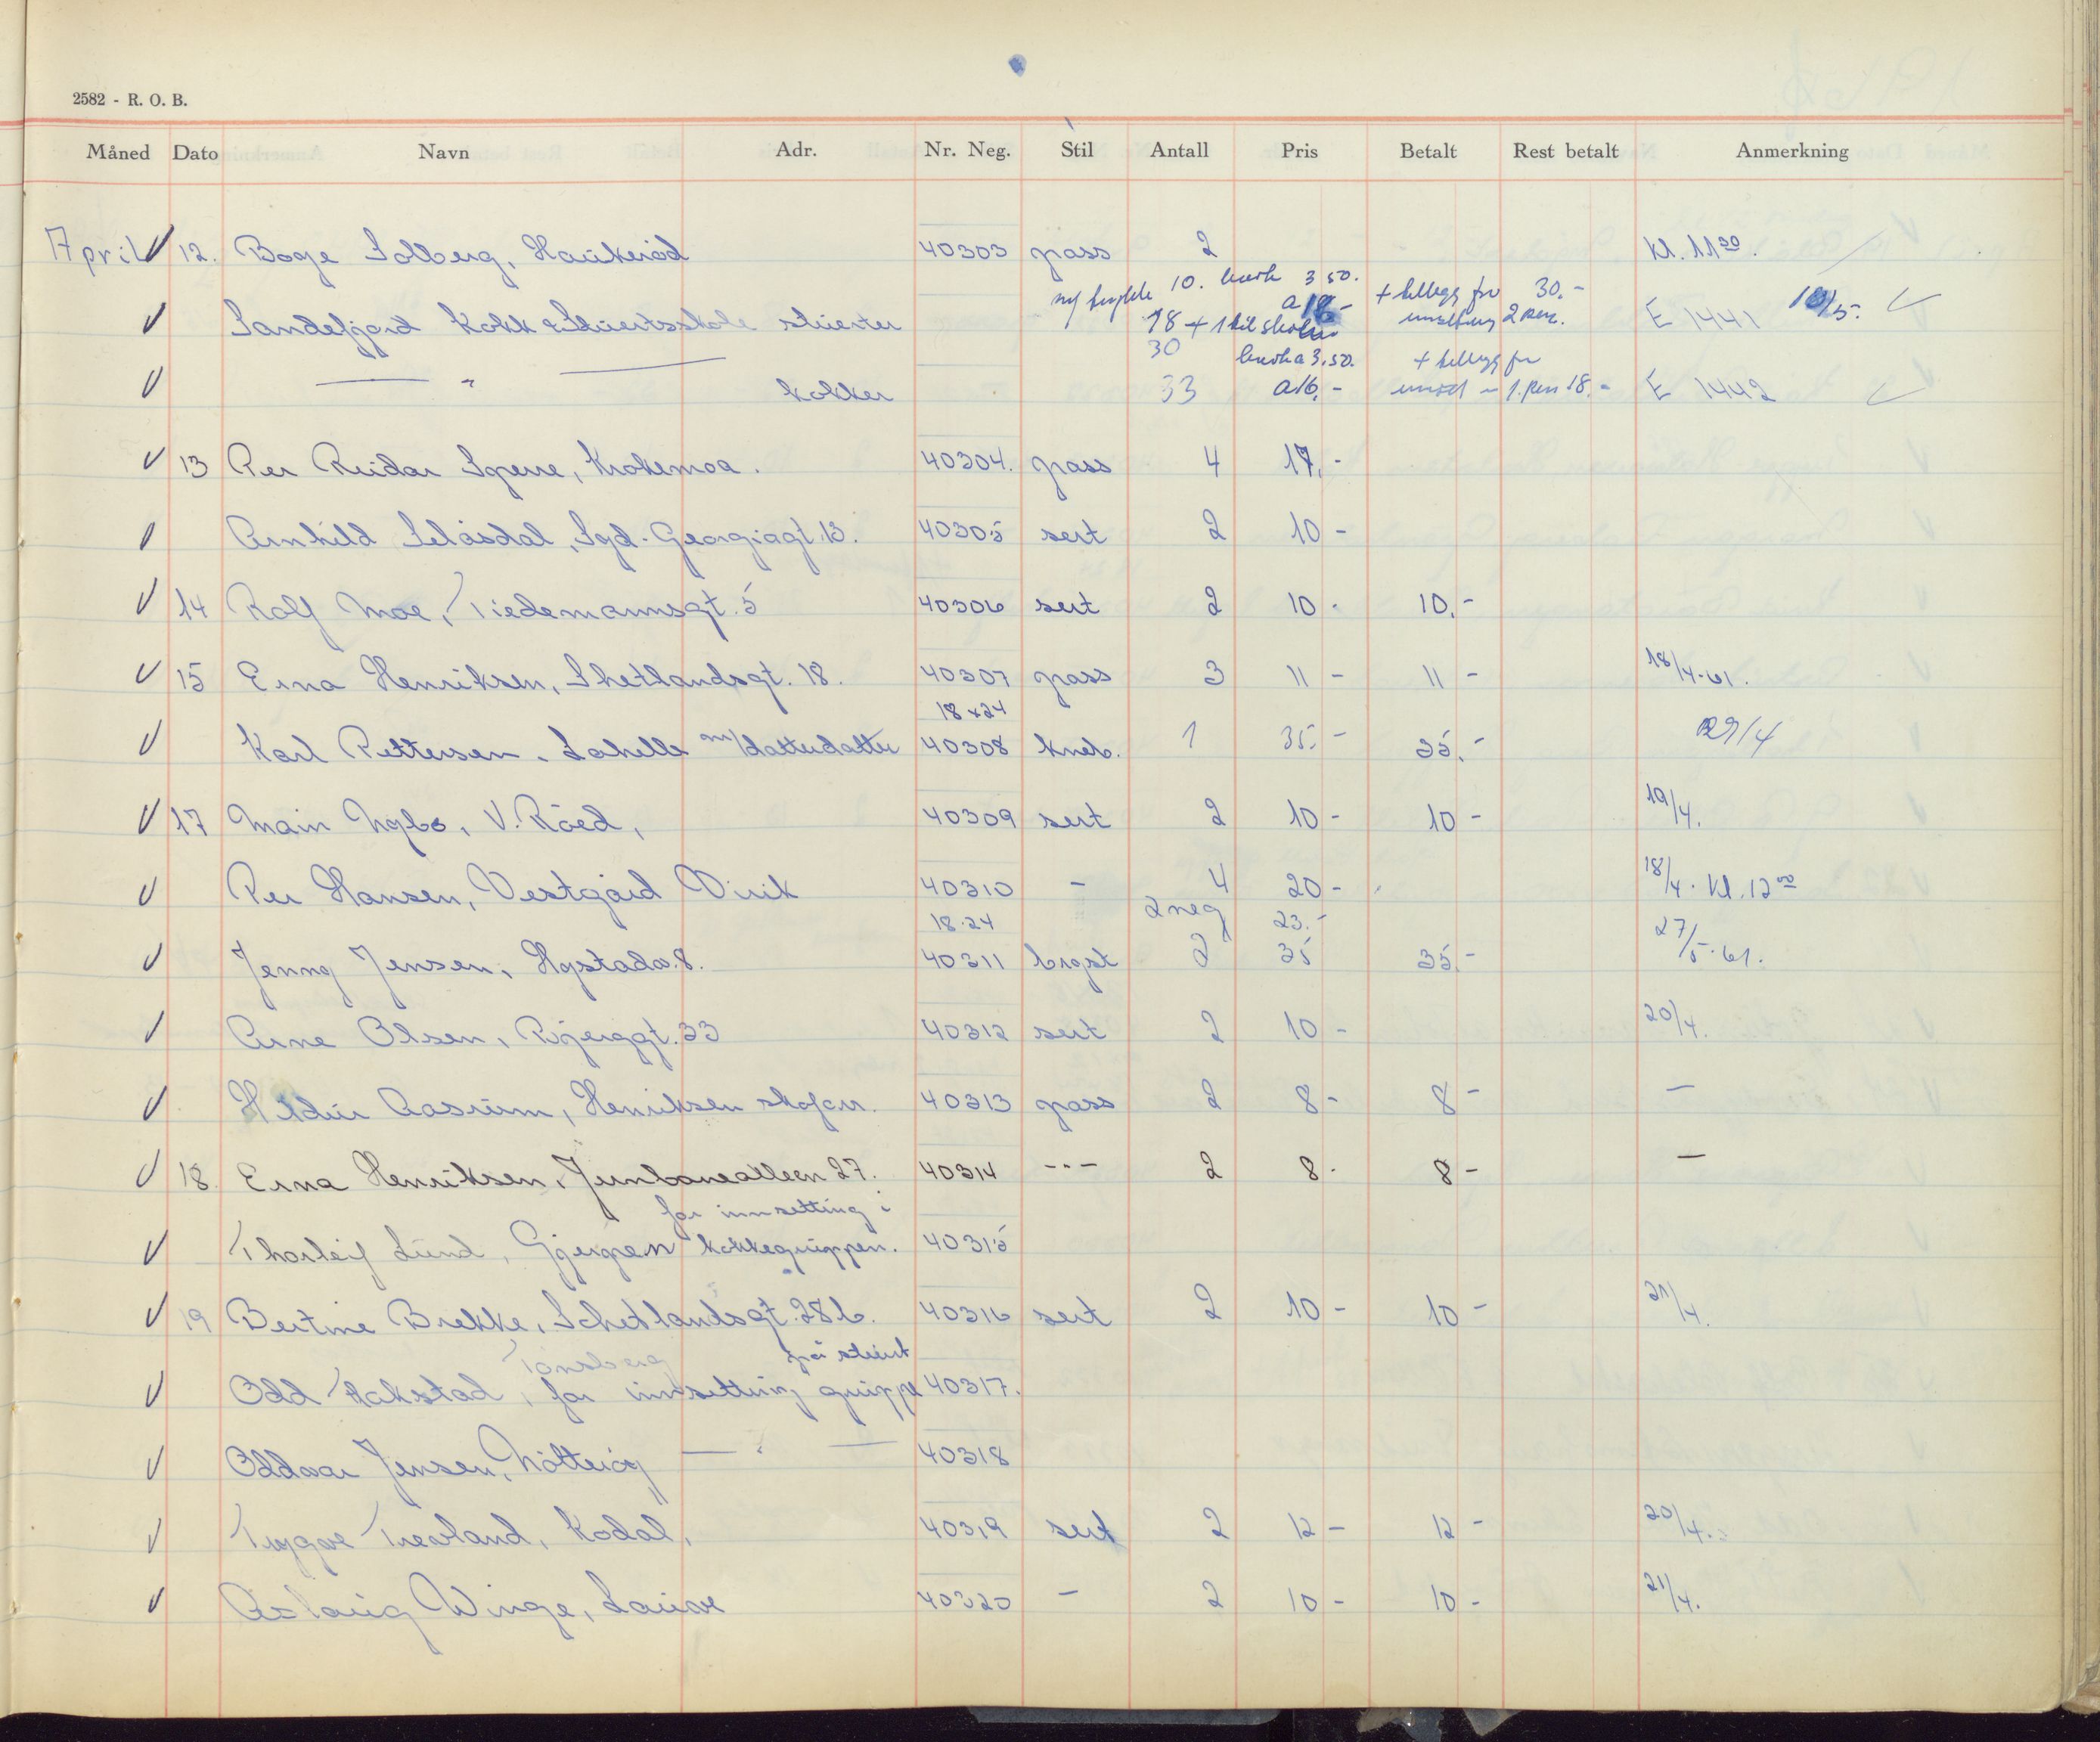 2582 - R. O. B.
Måned Dato Navn Adr. Nr. Neg. Stil Antall Pris Betalt Rest betalt Anmerkning
April 12. Boge Solberg, Haukerød 40303 pass 2 Kl. 11 30.
10. 3 50. + tillegg for 30.-
Sandefjord Kokk & Stuertsskole stuerter 18 + 1 til skolen a 18.- 2 pers. E 1441 10/5.
30 a 3.50. + tillegg for
— " — kokker 33 a 16,- 1. pers 18.- E 1442
13 Per Reidar Sperre, Krokemoa. 40304. pass 4 17.-
Arnhild Selåsdal, Sgd. Georgiagt. 13. 40305 sert 2 10 -
14 Rolf Moe, Tiedemannsgt. 5 40306 sert 2 10 - 10.-
15 Erna Henriksen, Shetlandsgt. 18. 40307 pass 3 11 - 11 - 18/4-61.
18 x 24
Karl Pettersen. Lahelle m/datterdatter 40308 kneb. 1 35.- 35.- 29/4
17 Main Nybo, V. Råed, 40309 sert 2 10 - 10 - 19/4.
Per Hansen, Vestgård Virik 40310 - 4 20 - 18/4. Kl. 12 00
18.24 2 neg 23.-
Jenny Jensen, Hystadv. 8. 40311 bryst 2 35 35.- 27/5-61.
Arne Olsen, Bjerggt. 33 40312 sert 2 10 - 20/4.
Hildur Aasrum, Henriksen skoforr. 40313 pass 2 8 - 8 - —
18. Erna Henriksen, Jernbanealleen 27. 40314 -"- 2 8 - 8 - —
for innsetting i
Thorleif Lund, Gjerpen kokkegruppen. 40315
19 Bertine Brekke, Schetlandsgt. 28 b. 40316 sert 2 10 - 10 - 21/4.
Tønsberg på stuert
Odd Hakstad, for innsetting gruppe 40317.
Oddvar Jensen, Nøtterøy — " — 40318
Trygve Trevland, Kodal, 40319 sert 2 12 - 12 - 20/4.
Aslaug Winge, Lauve 40320 - 2 10 - 10 - 21/4.